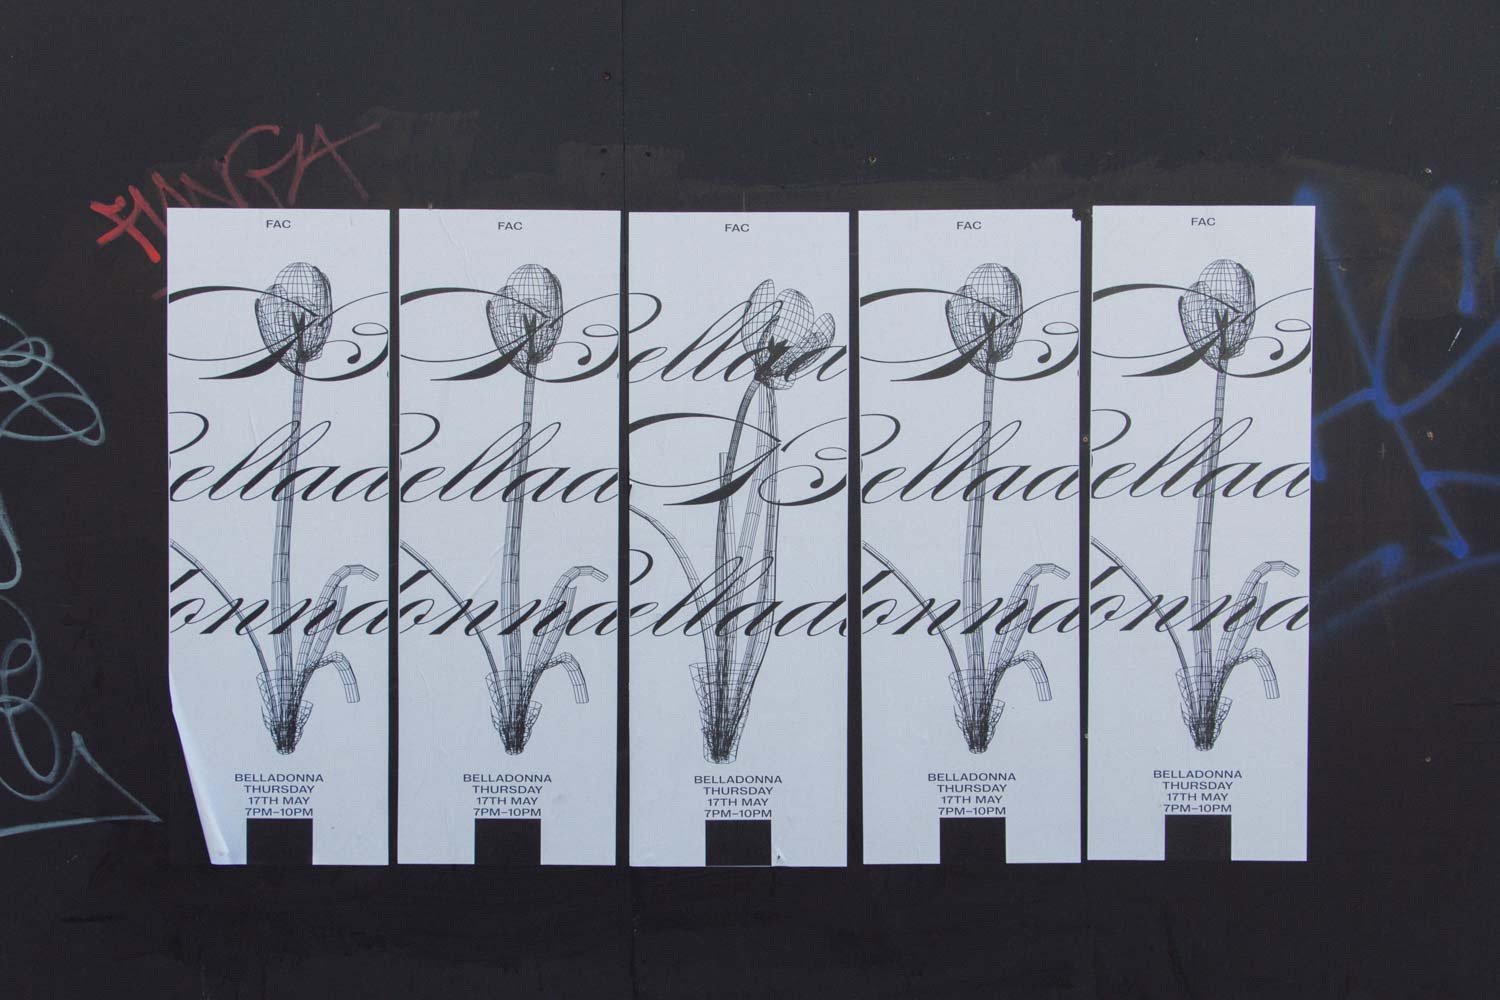 HANGA
FAC
B
Bellad
donna
BELLADONNA
THURSDAY
17TH MAY
7PM–10PM
FAC
B
Bellad
donna
BELLADONNA
THURSDAY
17TH MAY
7PM–10PM
FAC
Bellaa
B
ellado
BELLADONNA
THURSDAY
17TH MAY
7PM–10PM
FAC
B
Bellad
donna
BELLADONNA
THURSDAY
17TH MAY
7PM–10PM
FAC
B
Bellad
donna
BELLADONNA
THURSDAY
17TH MAY
7PM–10PM